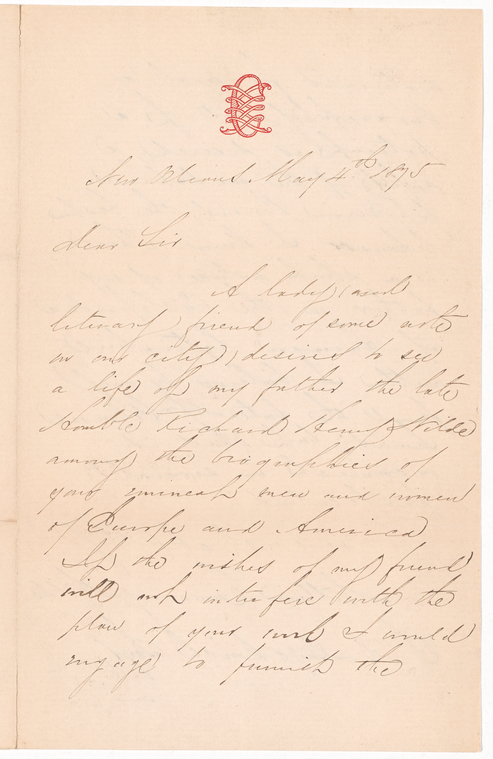 New Orleans May 4th 1875
Dear Sir
A lady (and
literary friend of some note
in our city) desires to see
a life of my father the late
Honble Richard Henry Wilde
among the biographies of
your eminent men and women
of Europe and America
If the wishes of my friend
will not interfere with the
plan of your work I would
engage to furnish the